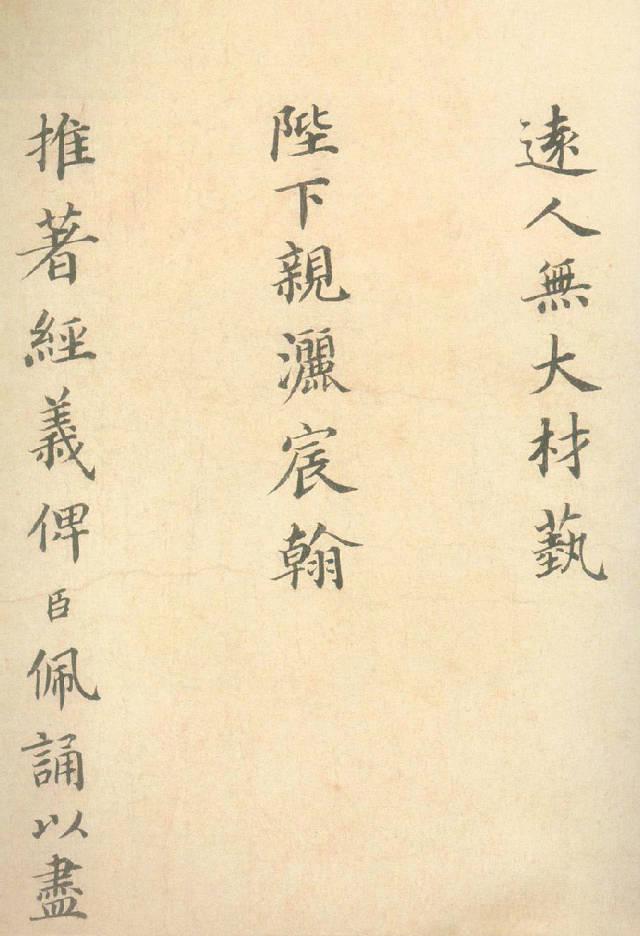 遠人無大材藝
陛下親灑宸翰
推著經義俾臣佩誦以盡